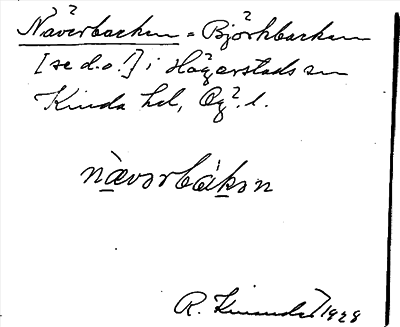 Näverbacken = Björkbacken
[se d.o.!] i Hägerstads sn
Kinda hd, Ög. l.
nævərbakən
R. 1928